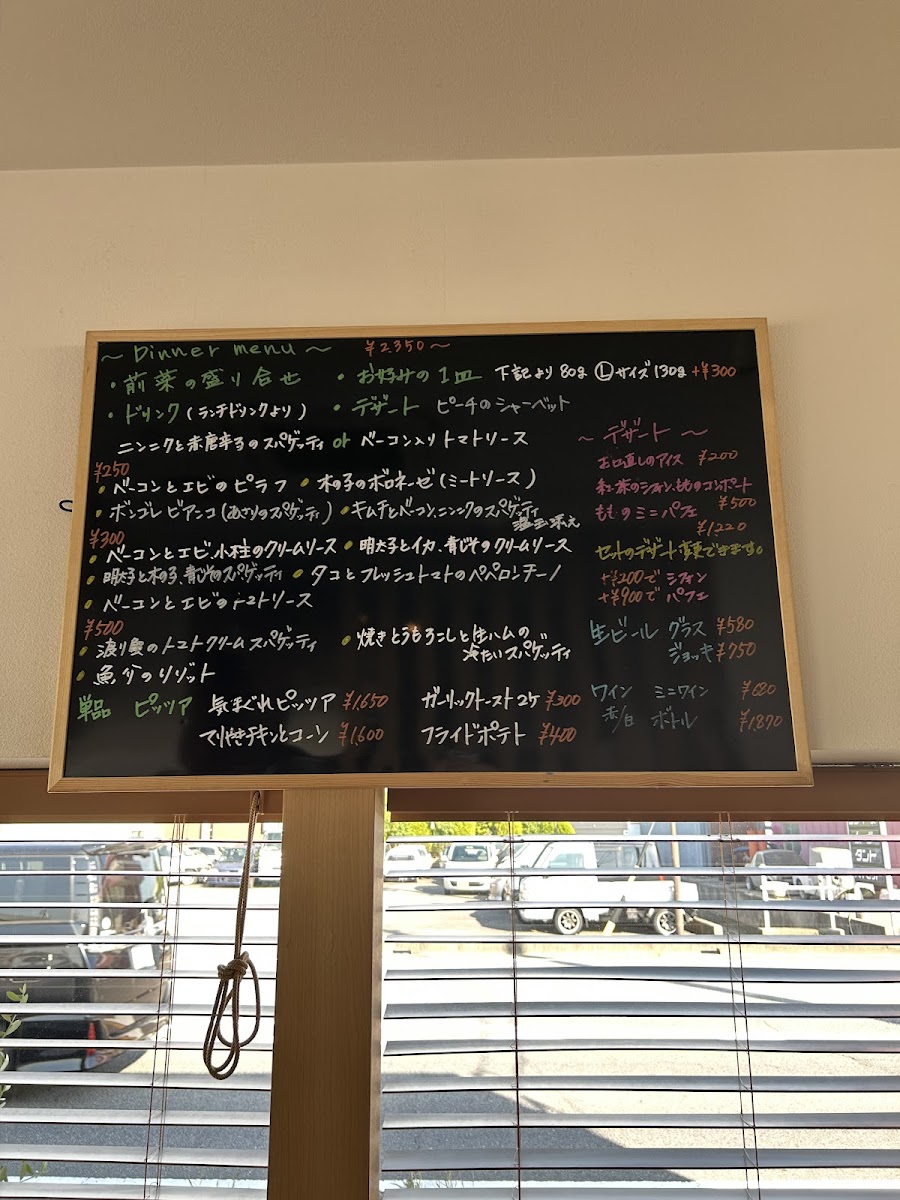 ～ Dinner menu ～ ¥2,350～
・前菜の盛り合せ ・お好みの1皿 下記より80g Ⓛサイズ130g +¥300
・ドリンク(ランチドリンクより) ・デザート ピーチのシャーベット
ニンニクと赤唐辛子のスパゲッティ or ベーコン入りトマトソース
¥250
・ベーコンとエビのピラフ ・木の子のボロネーゼ(ミートソース)
・ボンゴレビアンコ(あさりのスパゲッティ) ・キムチとベーコン、ニンニクのスパゲッティ
温玉添え
¥300
・ベーコンとエビ、小柱のクリームソース ・明太子とイカ、青じそのクリームソース
・明太子と木の子、青じそのスパゲッティ ・タコとフレッシュトマトのペペロンチーノ
・ベーコンとエビのトマトソース
¥500
・渡り蟹のトマトクリームスパゲッティ ・焼きとうもろこしと生ハムの
冷たいスパゲッティ
・魚介のリゾット
単品 ピッツア 気まぐれピッツア ¥1,650 ガーリックトースト2ケ ¥300
てりやきチキンとコーン ¥1,600 フライドポテト ¥400
～ デザート ～
お口直しのアイス ¥200
紅茶のシフォン、もものコンポート
¥500
もものミニパフェ
¥1,220
セットのデザート変更できます。
+¥200で シフォン
+¥900で パフェ
生ビール グラス ¥580
ジョッキ ¥750
ワイン ミニワイン ¥680
赤/白 ボトル ¥1,870
タント